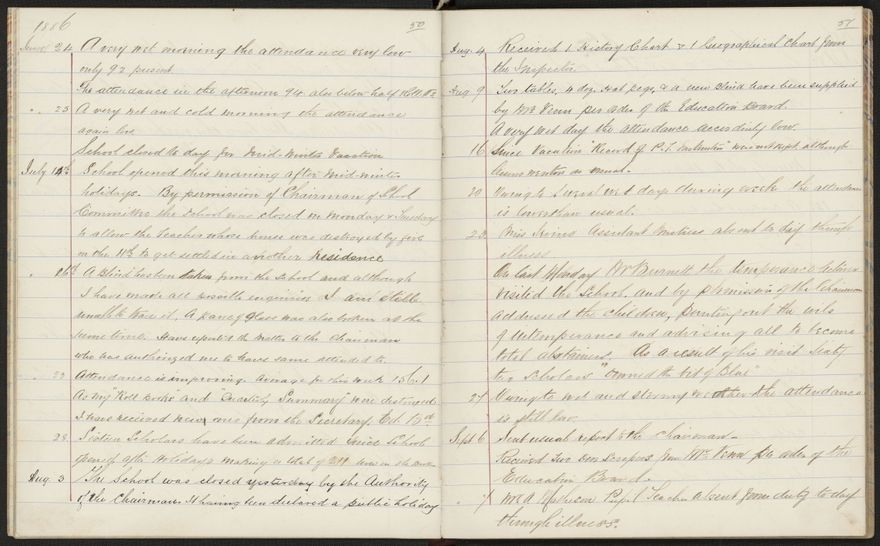 1886
50
June 24 A very wet morning the attendance very low
only 92 present
The attendance in the afternoon 94 also below half
" 25 A very wet and cold morning the attendance
again low.
School closed to day for Mid-Winter Vacation
July 14th School opened this morning after Mid-winter
holidays. By permission of Chairman of School
Committee the School was closed on Monday & Tuesday
to allow the teacher whose house was destroyed by fire
on the 11th to get settled in another residence
" 16th A blind has been taken from the school and although
I have made all possible enquiries I am still
unable to trace it. A pane of glass was also broken at the
same time. Have reported the matter to the Chairman
who has authorized me to have same attended to.
" 23 Attendance is improving. Average for this week 156.1
As my "Roll books and Quarterly Summary" were destroyed
I have received new ones from the Secretary Ed. Bd.
" 28 Sixteen Scholars have been admitted since School
opened after Holidays making a total of 211 now on the
Aug. 3 The School was closed yesterday by the Authority
of the Chairman it having been declared a public holiday
51
Aug. 4 Received 1 History Chart & 1 Geographical Chart from
the Inspector
Aug. 9 Two tables, 4 doz. hat pegs, & a new blind have been supplied
by Mr Venn per order of the Education Board.
A very wet day the attendance accordingly low.
16 Since Vacation "Record of P.T. Instruction" was not kept although
lessons were given as usual.
20 Owing to several wet days during week the attendance
is lower than usual.
23 Miss Irvine Assistant Mistress absent to day through
illness
On last Monday Mr Burnett the temperance lecturer
visited the School, and by permission of the Chairman
addressed the children, pointing out the evils
of Intemperance and advising all to become
total abstainers. As a result of his visit Sixty
two Scholars "donned the bit of Blue"
27 Owing to wet and stormy weather the attendance
is still low.
Sept. 6 Sent usual report to the chairman.
Received two door scrapers from Mr. Venn per order of the
Education Board.
" 7 Mr A. Pupil Teacher absent from duty to day
through illness.